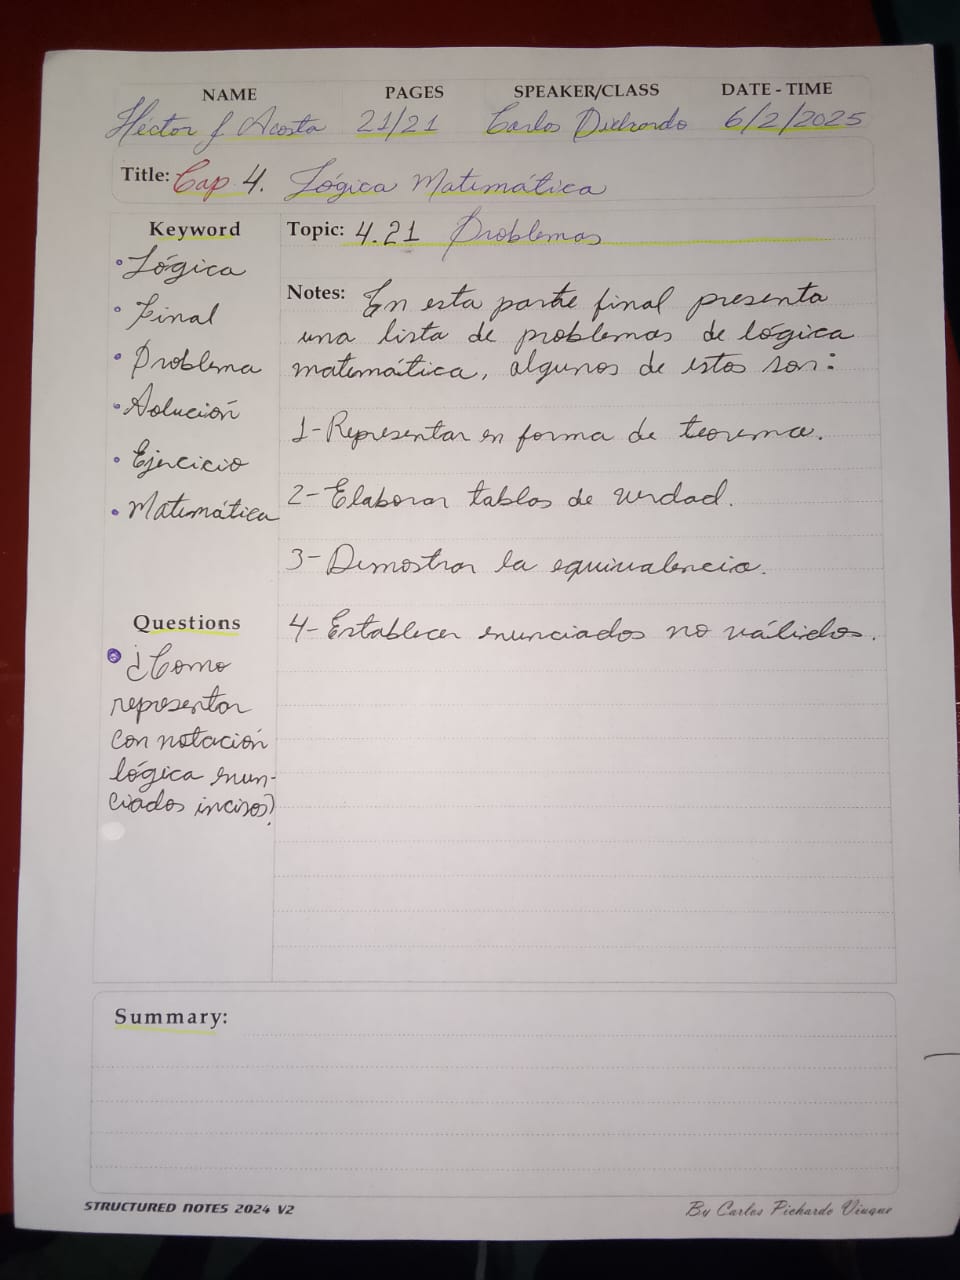 NAME PAGES SPEAKER/CLASS DATE - TIME
Héctor J Acosta 21/21 Carlos Pichardo 6/2/2025
Title: Cap 4. Lógica Matemática
Keyword
• Lógica
• Final
• Problema
• Solución
• Ejercicio
• Matemática
Questions
• ¿Como
representar
con notación
lógica enun-
ciados incisos?
Topic: 4.21 Problemas
Notes: En esta parte final presenta
una lista de problemas de lógica
matemática, algunos de estos son:
1- Representar en forma de teorema.
2- Elaborar tablas de verdad.
3- Demostrar la equivalencia.
4- Establecer enunciados no válidos.
Summary:
STRUCTURED NOTES 2024 V2
By Carlos Pichardo Viuque